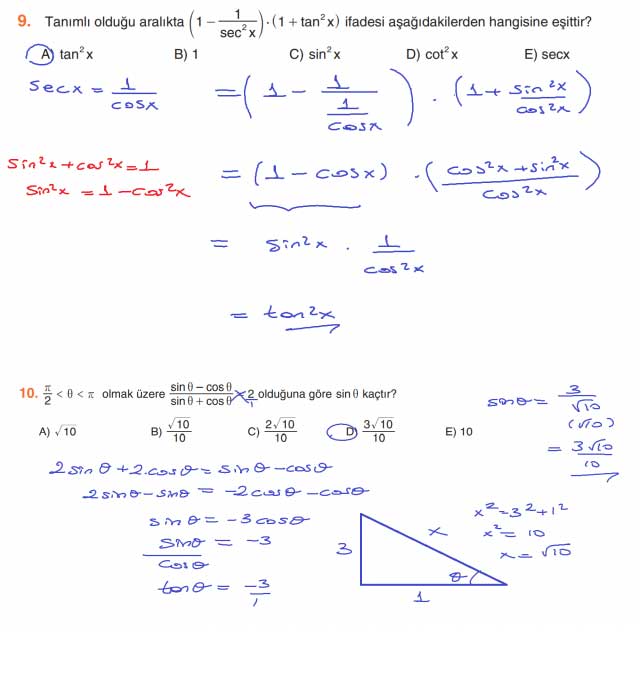 9. Tanımlı olduğu aralıkta (1 − 1/sec²x)·(1 + tan²x) ifadesi aşağıdakilerden hangisine eşittir?
A) tan²x B) 1 C) sin²x D) cot²x E) secx
secx = 1/cosx = (1 − 1/(1/cosx)) · (1 + sin²x/cos²x)
sin²x + cos²x = 1
sin²x = 1 − cos²x
= (1 − cosx) · ((cos²x + sin²x)/cos²x)
= sin²x · 1/cos²x
= tan²x
10. π/2 < θ < π olmak üzere (sinθ − cosθ)/(sinθ + cosθ) = 2/1 olduğuna göre sinθ kaçtır?
A) √10 B) √10/10 C) 2√10/10 D) 3√10/10 E) 10
sinθ = 3/√10
(√10)
= 3√10/10
2sinθ + 2.cosθ = sinθ − cosθ
2sinθ − sinθ = −2cosθ − cosθ
sinθ = −3cosθ
sinθ/cosθ = −3
tanθ = −3/1
3
x
θ
1
x² = 3² + 1²
x² = 10
x = √10